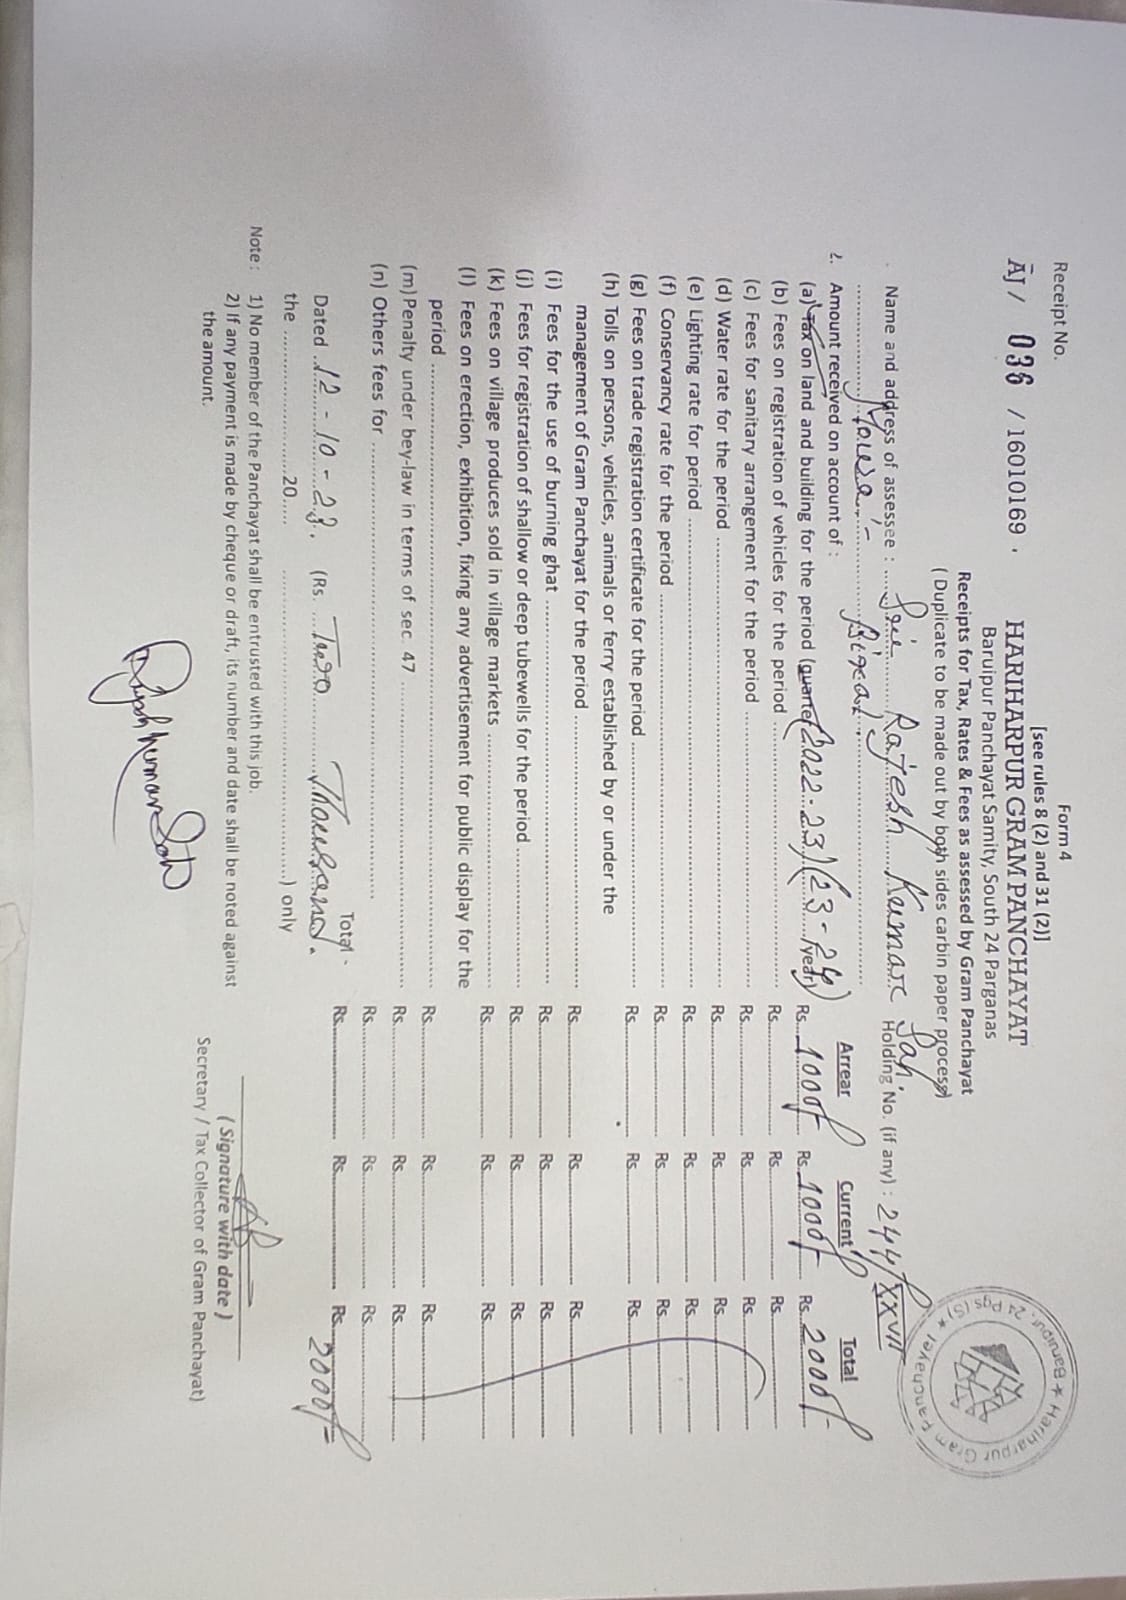 Form 4
[see rules 8 (2) and 31 (2)]
Receipt No.
ĀJ / 036 / 16010169 .
HARIHARPUR GRAM PANCHAYAT
Baruipur Panchayat Samity, South 24 Parganas
Receipts for Tax, Rates & Fees as assessed by Gram Panchayat
( Duplicate to be made out by both sides carbin paper process)
Hariharpur Gram Panchayet ★ Baruipur, 24 Pgs (S) ★
Name and address of assessee : Sri Rajesh Kumar Sah. Holding No. (if any) : 244/XXVII
2. Amount received on account of : Arrear Current Total
(a) Tax on land and building for the period (quarter (2022-23) (23-24) /year) Rs. 1000/- Rs. 1000/- Rs. 2000/-
(b) Fees on registration of vehicles for the period Rs. Rs. Rs.
(c) Fees for sanitary arrangement for the period Rs. Rs. Rs.
(d) Water rate for the period Rs. Rs. Rs.
(e) Lighting rate for period Rs. Rs. Rs.
(f) Conservancy rate for the period Rs. Rs. Rs.
(g) Fees on trade registration certificate for the period Rs. Rs. Rs.
(h) Tolls on persons, vehicles, animals or ferry established by or under the
management of Gram Panchayat for the period Rs. Rs. Rs.
(i) Fees for the use of burning ghat Rs. Rs. Rs.
(j) Fees for registration of shallow or deep tubewells for the period Rs. Rs. Rs.
(k) Fees on village produces sold in village markets Rs. Rs. Rs.
(l) Fees on erection, exhibition, fixing any advertisement for public display for the
period Rs. Rs. Rs.
(m) Penalty under bey-law in terms of sec. 47 Rs. Rs. Rs.
(n) Others fees for Rs. Rs. Rs.
Total Rs. Rs. Rs. 2000/=
Dated 12-10-23. (Rs. Two Thousand.
the 20 ) only
Note : 1) No member of the Panchayat shall be entrusted with this job.
2) If any payment is made by cheque or draft, its number and date shall be noted against
the amount.
( Signature with date )
Secretary / Tax Collector of Gram Panchayat)
Rajesh Kumar Sah